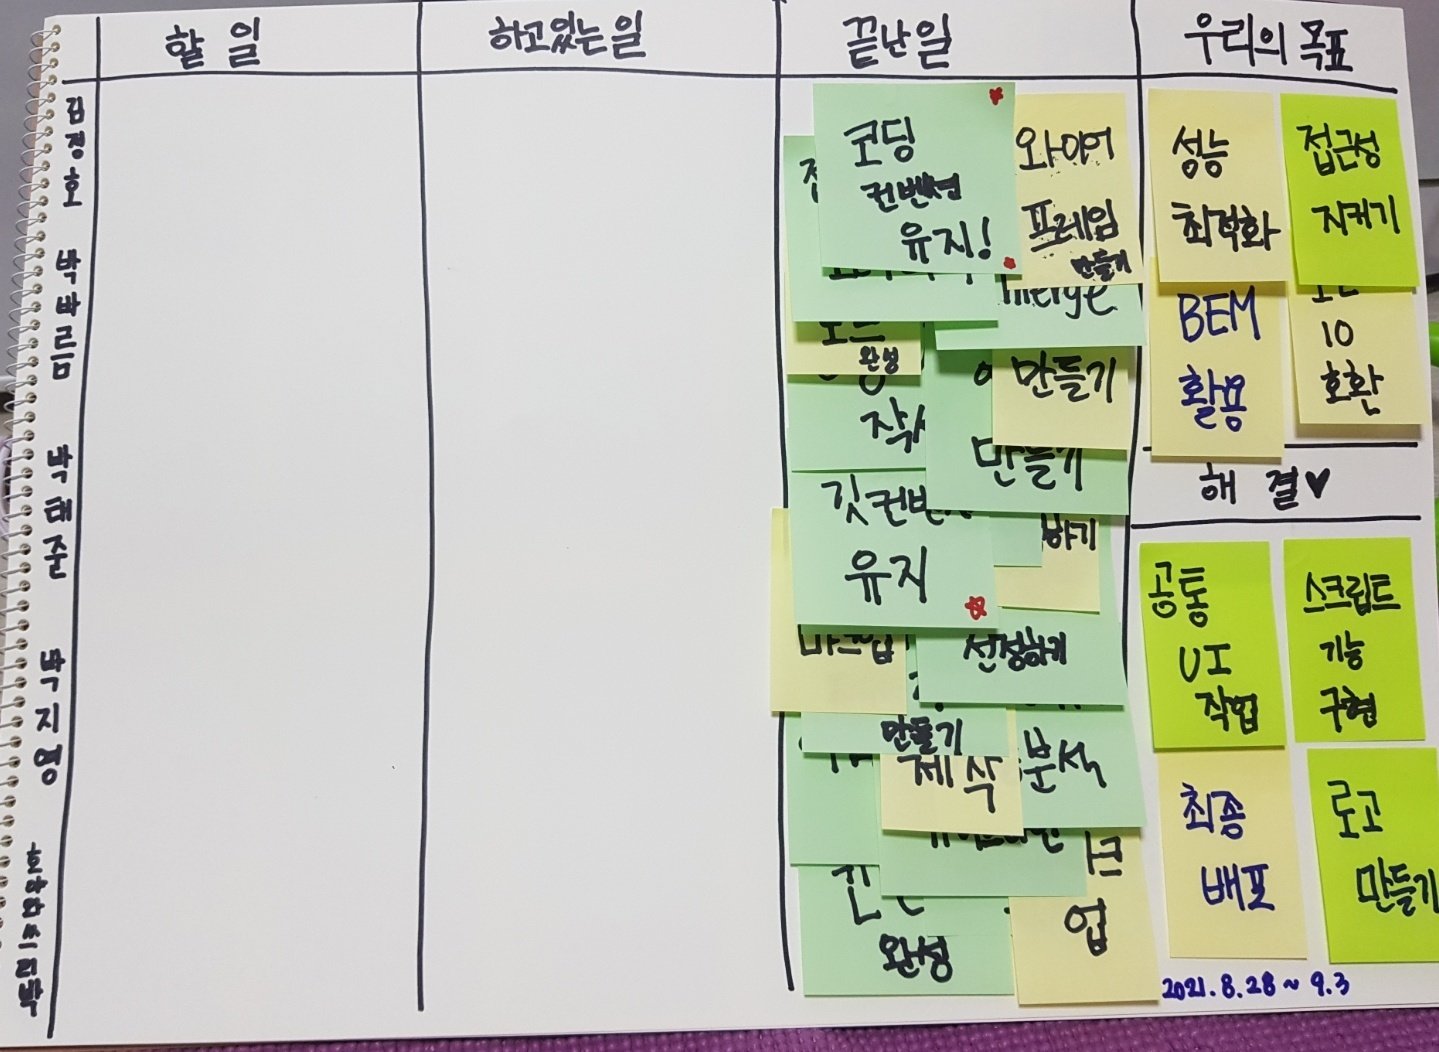 할 일
하고있는일
끝난일
우리의 목표
김정호
박바름
박태준
박지영
호와와쓰리박
코딩
컨벤션
유지!
와이어
프레임
만들기
merge
완성
만들기
만들기
깃컨벤
유지
하기
마크업
선정하기
만들기
제작
분석
완성
크
업
성능
최적화
접근성
지키기
BEM
활용
10
호환
해 결♥
공통
UI
작업
스크립트
기능
구현
최종
배포
로고
만들기
2021.8.28~9.3